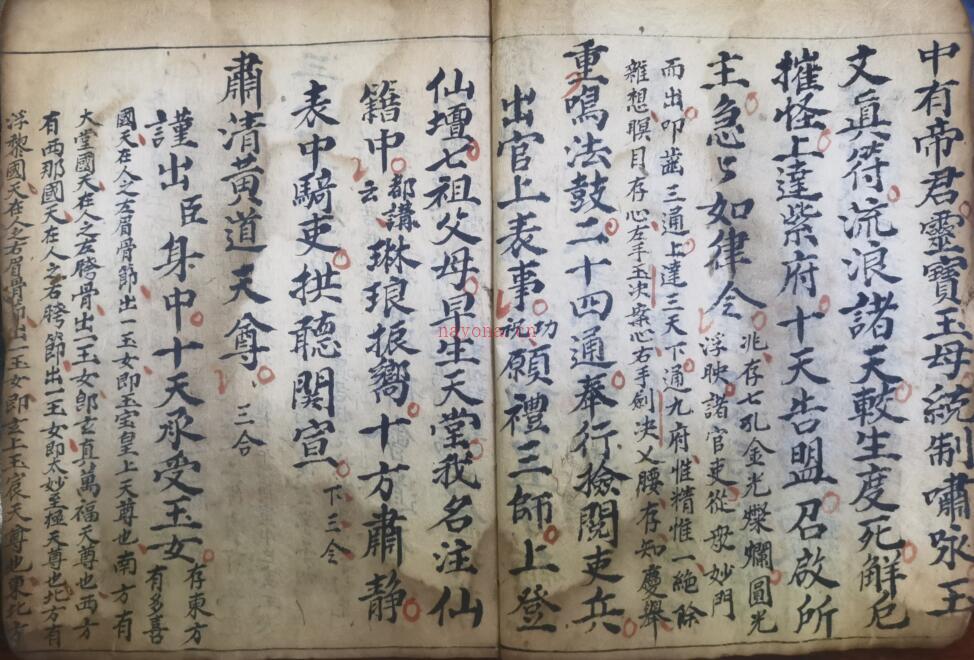 中有帝君靈寶玉母統制嘯咏玉
文真符流浪諸天較生度死解厄
摧怪上達紫府十天告盟召啟所
主急々如律令 兆存七孔金光燦爛圓光
浮映諸官吏從毋妙門
而出叩齒三通上達三天下通九府惟精惟一絕除
雜想瞑目存心左手玉决案心右手劍决乂腰存知慶舉
重鳴法鼓二十四通奉行撿閱吏兵
出官上表事 功祝 願禮三師上登
仙壇七祖父母早生天堂我名注仙
籍中 都講云 琳琅振嚮十方肅静
表中騎吏拱聽関宣 下三令
肅清黃道天尊 三合
謹出臣身中十天承受玉女 存東方
有多喜
國天在人之左眉骨節出一玉女即玉宝皇上天尊也南方有
大堂國天在人之左胯骨出一玉女郎玄真萬福天尊也西方
有西那國天在人之右胯節出一玉女即太妙至極天尊也北方有
浮黎國天在人之右眉骨節出一玉女即玄上玉宸天尊也東北方
nayona.cn